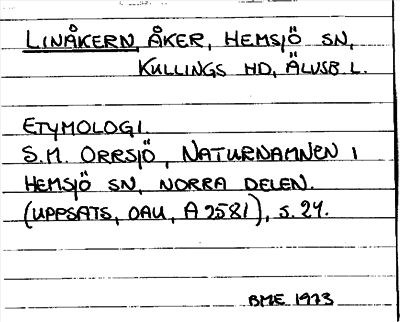 LINÅKERN, ÅKER, HEMSJÖ SN,
KULLINGS HD, ÄLVSB. L.
ETYMOLOGI.
S.M. ORRSJÖ, NATURNAMNEN I
HEMSJÖ SN, NORRA DELEN.
(UPPSATS, OAU, A 2581), S. 24.
BME 1973